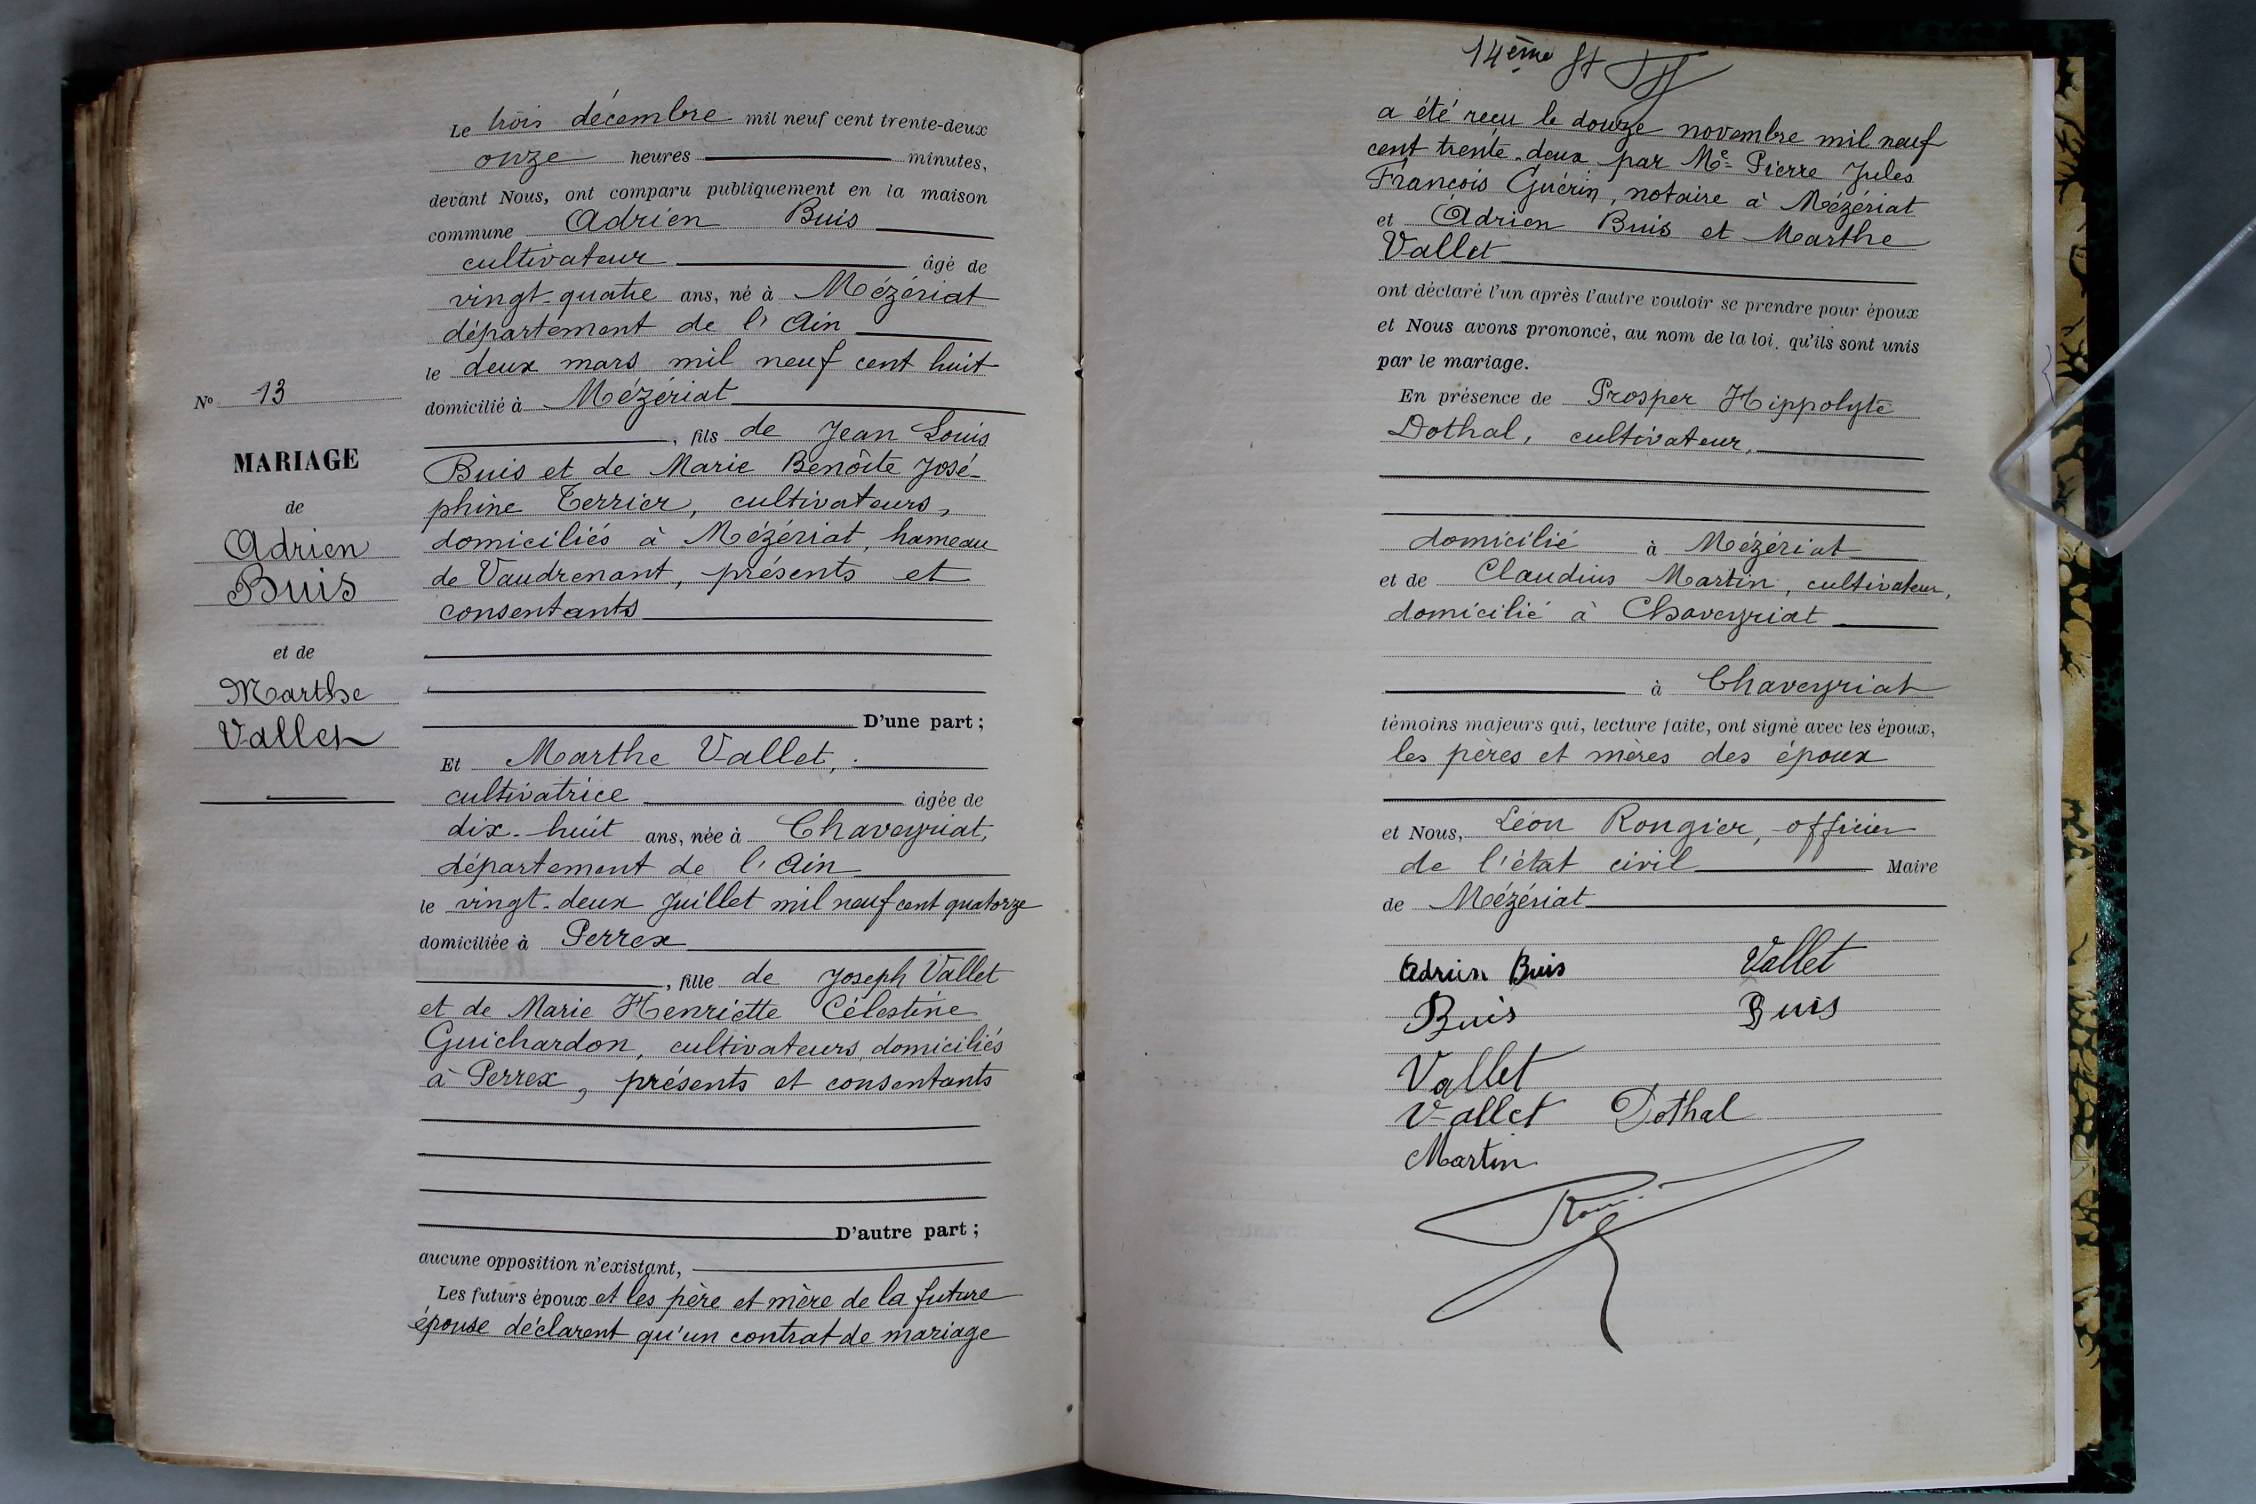 Le trois décembre mil neuf cent trente-deux
onze heures minutes,
devant Nous, ont comparu publiquement en la maison
commune Adrien Buis
cultivateur âgé de
vingt-quatre ans, né à Mézériat
département de l'Ain
le deux mars mil neuf cent huit
domicilié à Mézériat
, fils de Jean Louis
Buis et de Marie Benôite José-
phine Terrier, cultivateurs,
domiciliés à Mézériat, hameau
de Vaudrenant, présents et
consentants
D'une part ;
No 13
MARIAGE
de
Adrien
Buis
et de
Marthe
Vallet
Et Marthe Vallet,
cultivatrice âgée de
dix-huit ans, née à Chaveyriat,
département de l'Ain
le vingt-deux Juillet mil neuf cent quatorze
domiciliée à Perrex
, fille de Joseph Vallet
et de Marie Henriette Célestine
Guichardon, cultivateurs, domiciliés
à Perrex, présents et consentants
D'autre part ;
aucune opposition n'existant,
Les futurs époux et les père et mère de la future
épouse déclarent qu'un contrat de mariage
14ème
a été reçu le douze novembre mil neuf
cent trente-deux par Me Pierre Jules
François Guérin, notaire à Mézériat
et Adrien Buis et Marthe
Vallet
ont déclaré l'un après l'autre vouloir se prendre pour époux
et Nous avons prononcé, au nom de la loi, qu'ils sont unis
par le mariage.
En présence de Prosper Hippolyte
Dothal, cultivateur,
domicilié à Mézériat
et de Claudius Martin, cultivateur,
domicilié à Chaveyriat
à Chaveyriat
témoins majeurs qui, lecture faite, ont signé avec les époux,
les pères et mères des époux
et Nous, Léon Rongier, officier
de l'état civil Maire
de Mézériat
Adrien Buis Vallet
Buis Buis
Vallet
Vallet Dothal
Martin